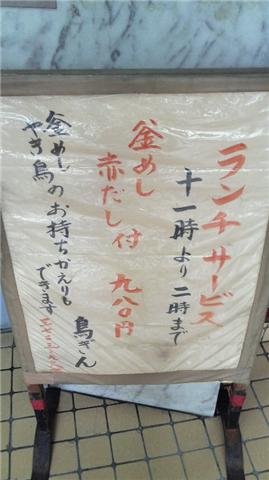 ランチサービス
十一時より二時まで
釜めし
赤だし付 九八〇円
鳥ぎん
釜めし
やき鳥のお持ちかえりも
できます